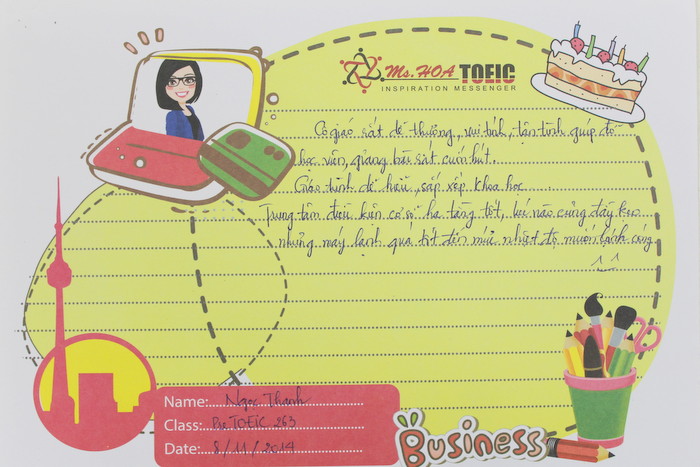 Ms. HOA TOEIC
INSPIRATION MESSENGER
Cô giáo rất dễ thương, vui tính, tận tình giúp đỡ
học viên, giảng bài rất cuốn hút.
Giáo trình dễ hiểu, sắp xếp khoa học
Trung tâm điều kiện cơ sở hạ tầng tốt, lúc nào cũng đầy kẹo
nhưng máy lạnh quá tốt đến mức nhiệt độ muốn lạnh cóng
^^
Name: Ngọc Thanh
Class: Pre TOEIC 263
Date: 8/11/2014
Business